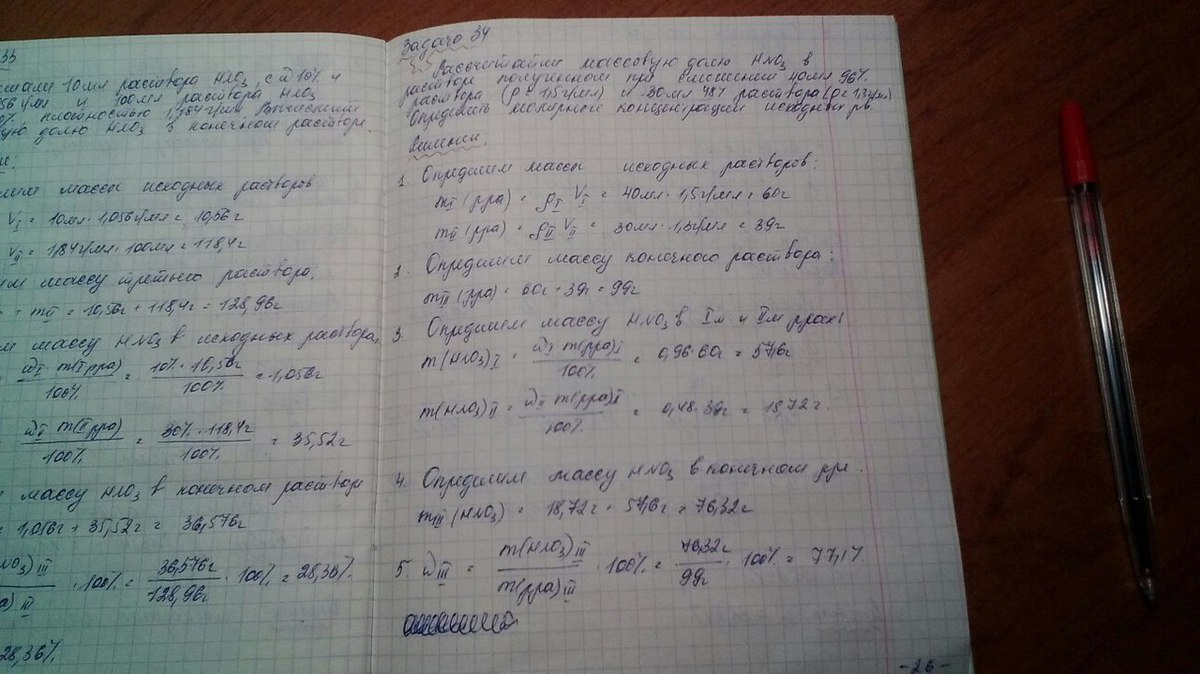 33
10мл раствора HNO3 с ω 10% и
и 100мл раствора HNO3
плотностью 1,184г/мл. Вычислить
долю HNO3 в конечном растворе.
массы исходных растворов
VI = 10мл · 1,056г/мл = 10,56г
VII = 1,84г/мл · 100мл = 118,4г
массу третьего раствора.
+ mII = 10,56г + 118,4г = 128,96г
массу HNO3 в исходных растворах
ωI m(I рра) / 100% = 10% · 10,56г / 100% = 1,056г
ωI m(II рра) / 100% = 30% · 118,4г / 100% = 35,52г
массу HNO3 в конечном растворе
= 1,056г + 35,52г = 36,576г
NO3) III / а) III · 100% = 36,576г / 128,96г · 100% = 28,36%.
28,36%.
Задача 34
Рассчитайте массовую долю HNO3 в
растворе полученном при смешении 40мл 96%
раствора (ρ = 1,5г/мл) и 30мл 48% раствора (ρ = 1,3г/мл)
Определить молярной концентрации исходных рв.
Решение.
1. Определим массы исходных растворов:
mI (рра) = ρI VI = 40мл · 1,5г/мл = 60г
mII (рра) = ρII VII = 30мл · 1,3г/мл = 39г
2. Определим массу конечного раствора:
mIII (рра) = 60г + 39г = 99г
3. Определим массу HNO3 в Iм и IIм ррах:
m(HNO3)I = ωI m(рра)I / 100% = 0,96 · 60г = 57,6г
m(HNO3)II = ωII m(рра)I / 100% = 0,48 · 39г = 18,72г.
4. Определим массу HNO3 в конечном рре.
mIII (HNO3) = 18,72г + 57,6г = 76,32г
5. ωIII = m(HNO3)III / m(рра)III · 100% = 76,32г / 99г · 100% = 77,1%
- 26 -